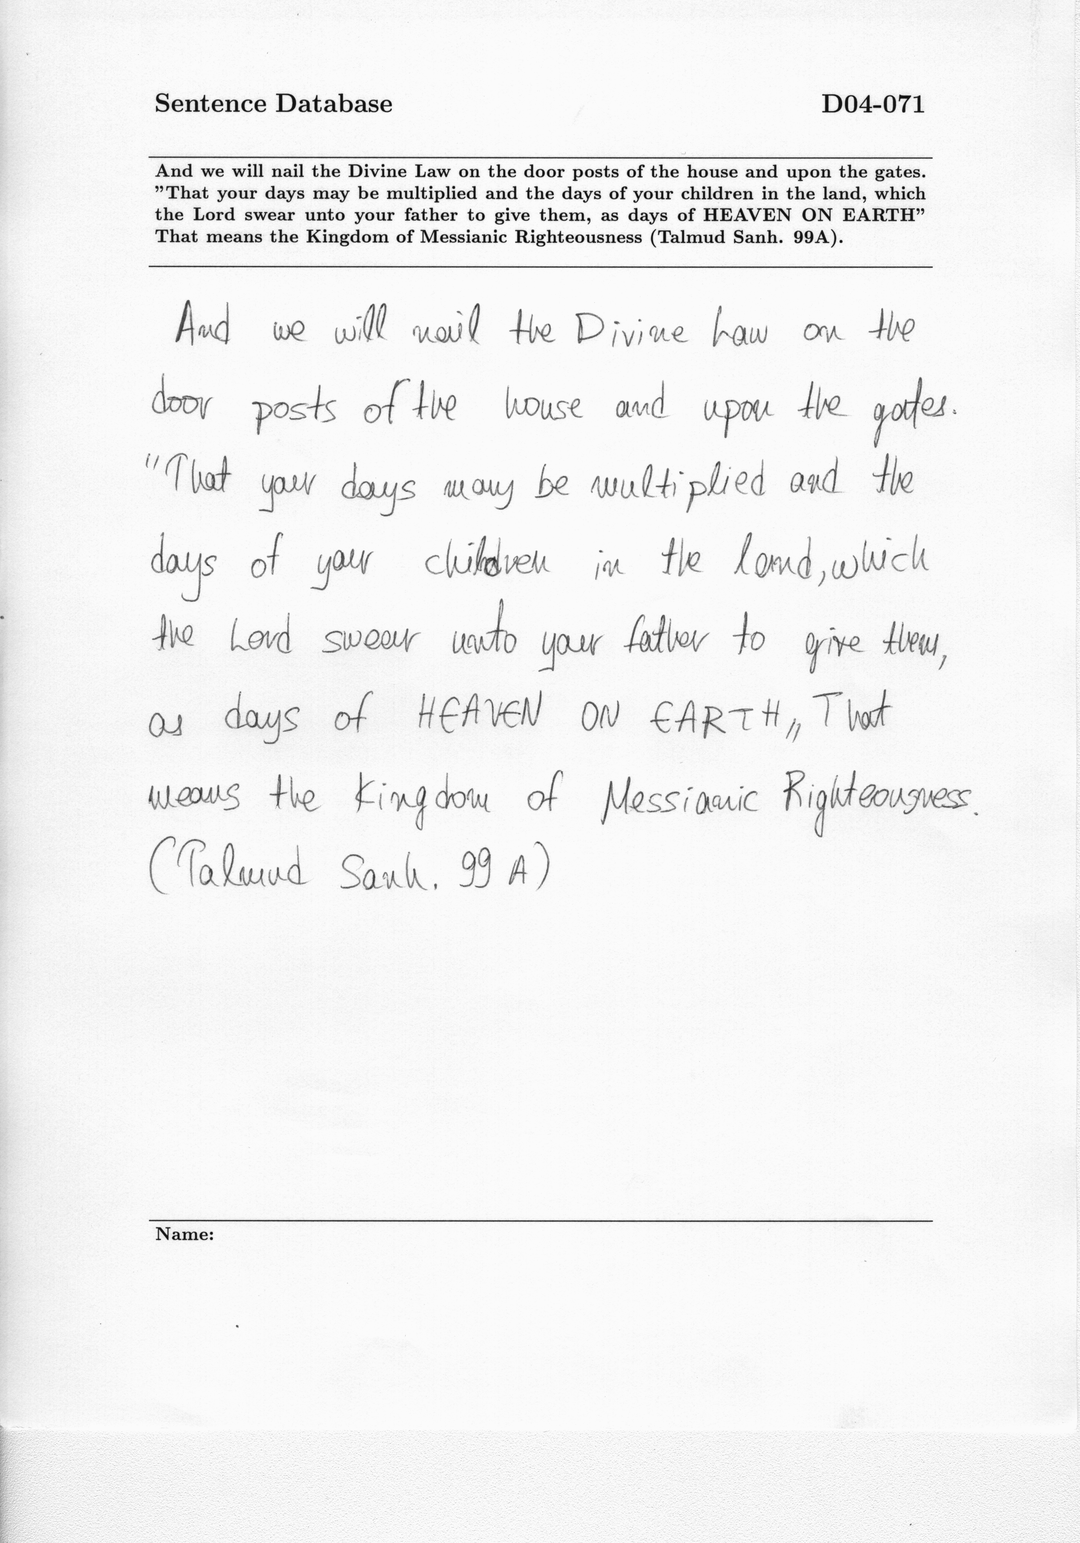 Sentence Database D04-071
And we will nail the Divine Law on the door posts of the house and upon the gates.
"That your days may be multiplied and the days of your children in the land, which
the Lord swear unto your father to give them, as days of HEAVEN ON EARTH"
That means the Kingdom of Messianic Righteousness (Talmud Sanh. 99A).
And we will nail the Divine Law on the
door posts of the house and upon the gates.
"That your days may be multiplied and the
days of your children in the land, which
the Lord swear unto your father to give them,
as days of HEAVEN ON EARTH" That
means the Kingdom of Messianic Righteousness.
(Talmud Sanh. 99 A)
Name: